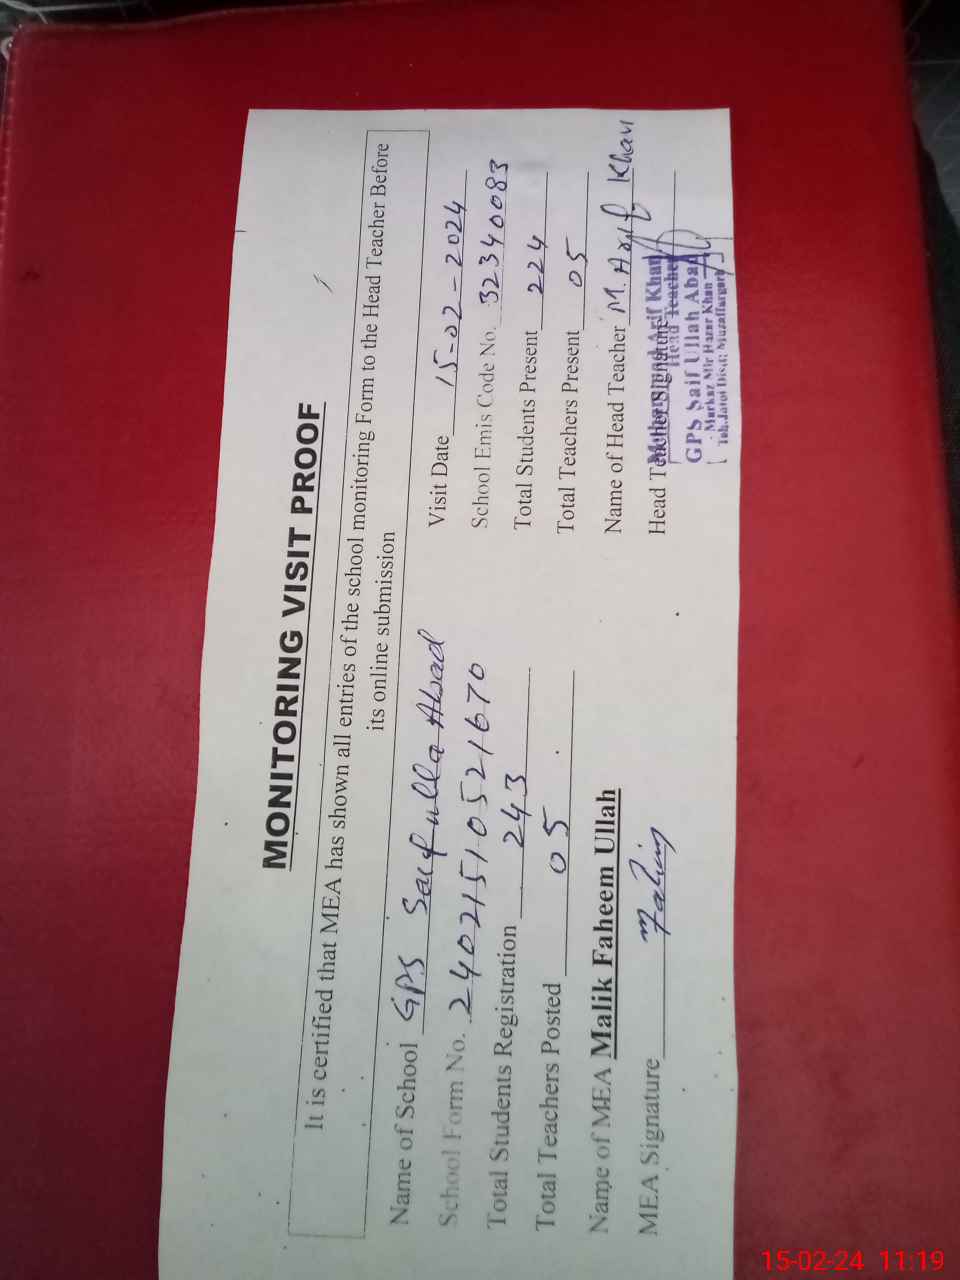 MONITORING VISIT PROOF
It is certified that MEA has shown all entries of the school monitoring Form to the Head Teacher Before
its online submission
Name of School GPS Saifulla Abad
Visit Date 15-02-2024
School Form No. 24021510521670
School Emis Code No. 32340083
Total Students Registration 243
Total Students Present 224
Total Teachers Posted 05
Total Teachers Present 05
Name of MEA Malik Faheem Ullah
Name of Head Teacher M. Arif Khan
MEA Signature Fahim
Head Teacher Signature
Muhammad Arif Khan
Head Teacher
GPS Saif Ullah Abad
Markaz Mir Hazar Khan
Teh. Jatoi Distt; Muzaffargarh
15-02-24 11:19